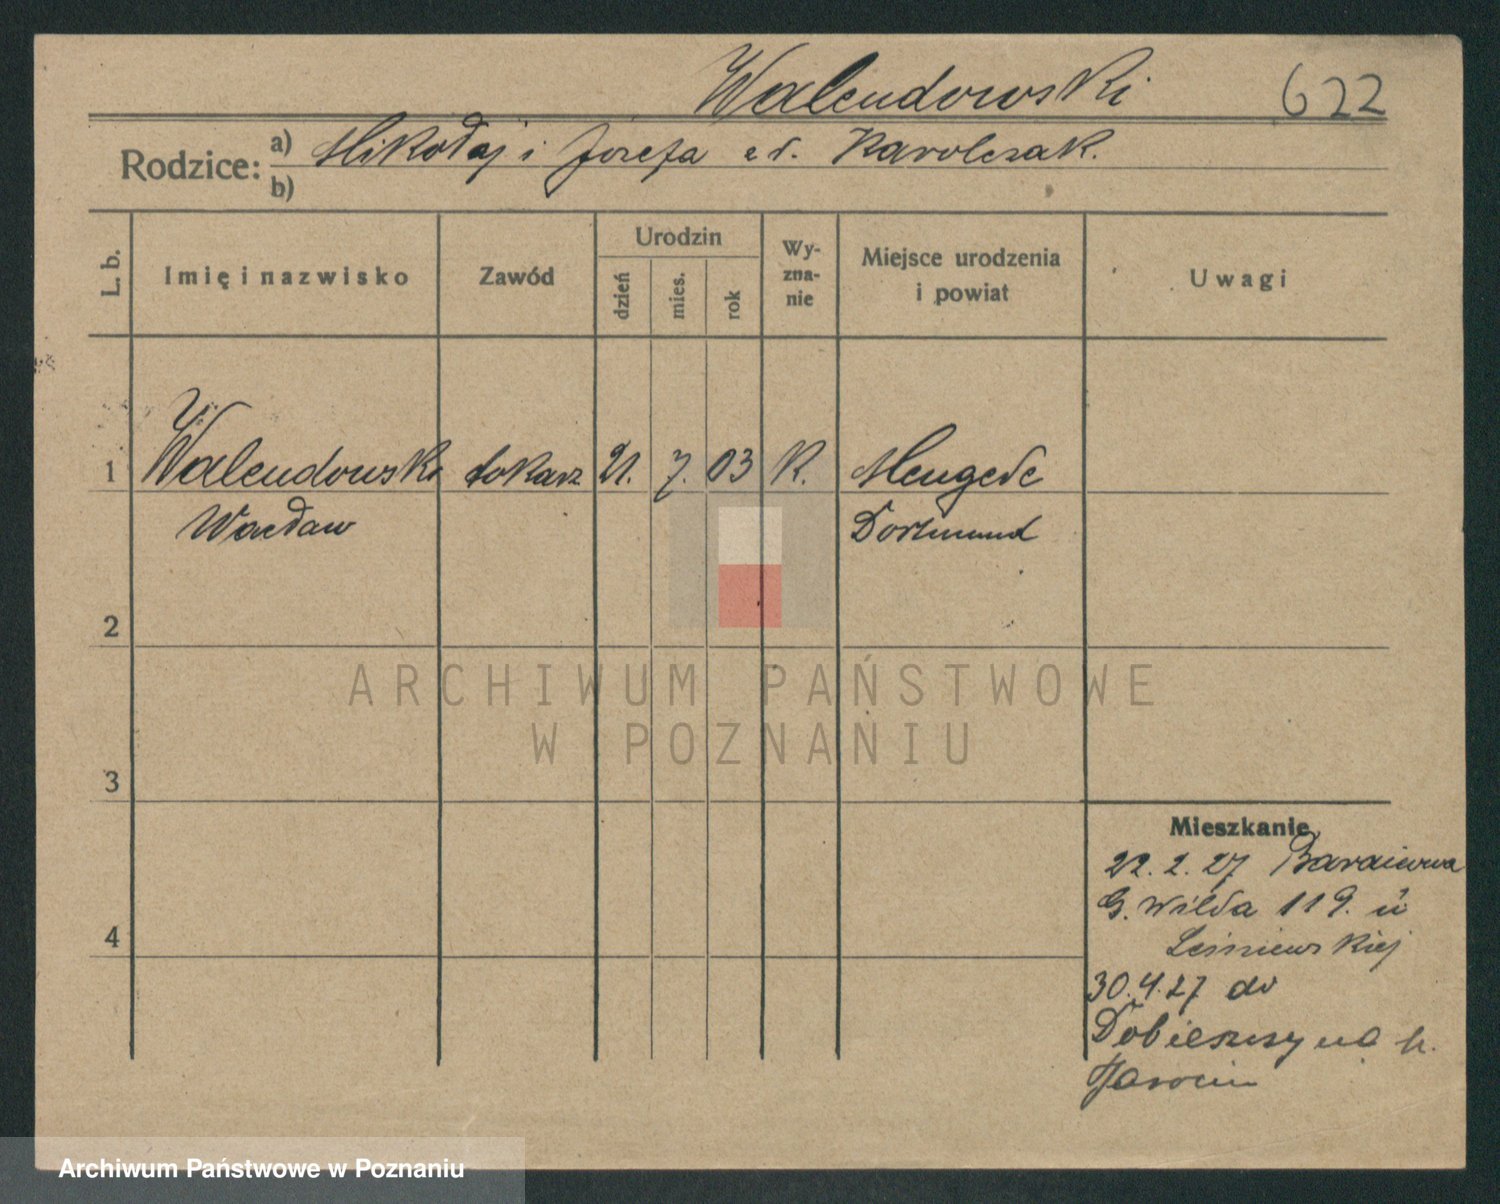 Walendowski 622
Rodzice: a) Mikołaj i Józefa z d. Karolczak.
b)
L. b. Imię i nazwisko Zawód Urodzin dzień mies. rok Wy-zna-nie Miejsce urodzenia i powiat Uwagi
1 Walendowski tokarz 21. 7. 03 K. Mengede
Wacław Dortmund
2
ARCHIWUM PAŃSTWOWE
W POZNANIU
3
4
Mieszkanie
22. 2. 27
G. Wilda 119. u
Leśniewskiej
30.4.27 do
Dobieszczyzna p.
Jarocin
Archiwum Państwowe w Poznaniu